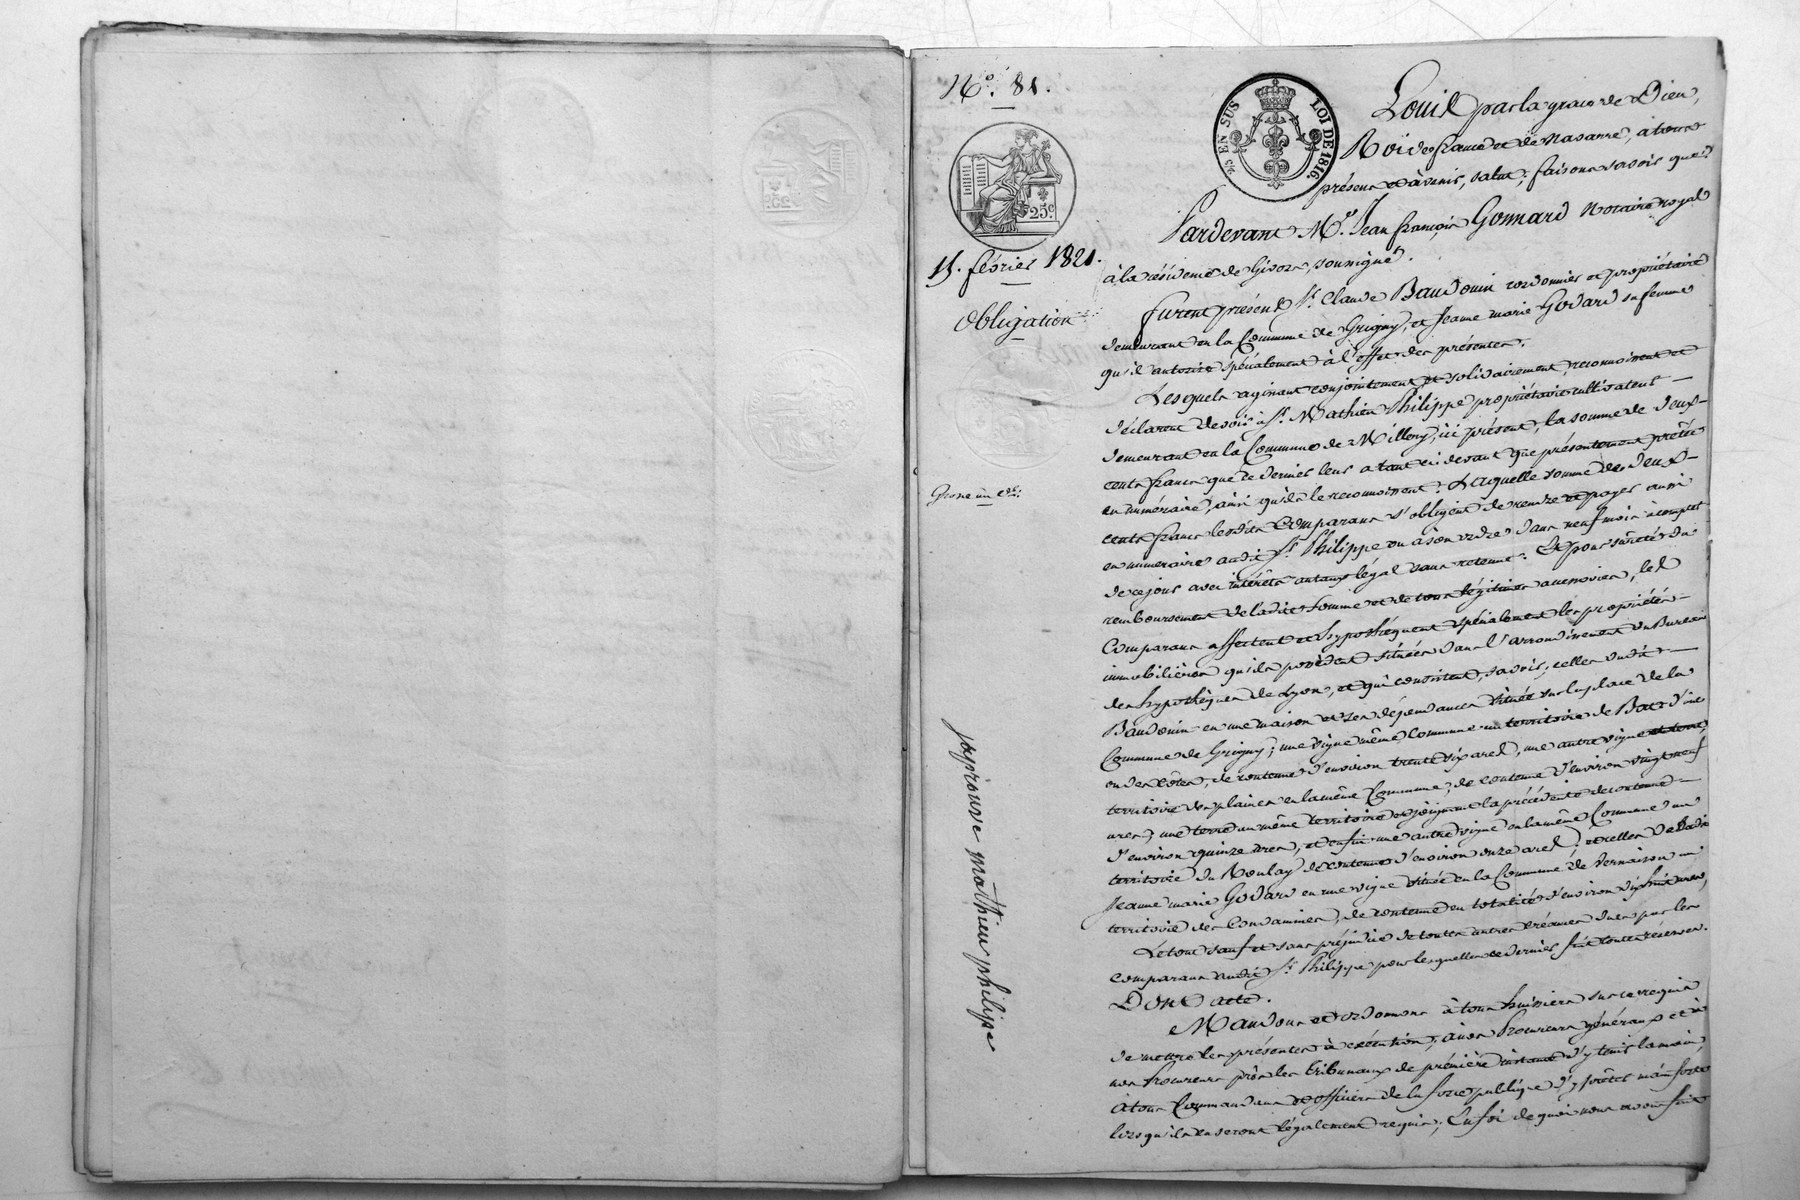 N.° 81.
¼ EN SUS LOI DE 1816.
25c
15. février 1821.
Obligation
Grosse un
j'approuve mathieu philipe
Louis par la grace de Dieu,
Roi de france et de Navarre, à tous
présens et à venir, salut; faisons savoir que
Pardevant M.e Jean françois Gonnard Notaire royal
à la résidence de Givors, soussigné.
furent présens Sr. Claude Baudouin cordonnier et propriétaire
demeurant en la Commune de Grigny, et Jeanne marie Godard sa femme
qu'il autorise spécialement à l'effet des présentes.
Lesquels agissant conjointement et solidairement, reconnoissent et
déclarent devoir à Sr. Mathieu Philippe propriétaire cultivateur
demeurant en la Commune de Millery, ici présent, la somme de deux
cents francs que ce dernier leur a tant ci devant que présentement prêtée
en numéraire, ainsi qu'ils le reconnoissent. Laquelle somme de deux
cents francs lesdits Comparans s'obligent de rendre et payer aussi
en numéraire audit Sr. Philippe ou à son ordre dans neuf mois à compter
de ce jour avec intérêts au taux légal sans retenue. Et pour sûreté du
remboursement de ladite somme et de tous légitimes accessoires, les
Comparans affectent et hypothèquent spécialement les propriétés
immobilières qu'ils possèdent situées dans l'arrondissement du Bureau
des hypothèques de Lyon, et qui consistent, savoir, celles dudit
Baudouin en une maison et ses dépendances située sur la place de la
Commune de Grigny; une vigne même Commune au territoire de
ou des côtes, de contenue d'environ trente six ares, une autre vigne
territoire des plaines en la même Commune, de contenue d'environ vingt neuf
ares; une terre au même territoire et joignant la précédente de contenue
d'environ quinze ares, et enfin une autre vigne en la même Commune au
territoire du Boulay de contenue d'environ onze ares; et celles de ladite
Jeanne marie Godard en une vigne située en la Commune de Vernaison
territoire des Condamines, de contenue en totalité d'environ dix huit ares,
Le tout sauf et sans préjudice de toutes autres créances dues par les
comparans audit Sr. Philippe pour lesquelles ce dernier fait toutes réserves.
Dont acte.
Mandons et ordonnons à tous huissiers sur ce requis
de mettre les présentes à exécution, à nos Procureurs généraux et à
nos Procureurs près les tribunaux de première instance d'y tenir la main,
à tous Commandans et officiers de la force publique d'y prêter main forte
lorsqu'ils en seront légalement requis; En foi de quoi nous avons fait